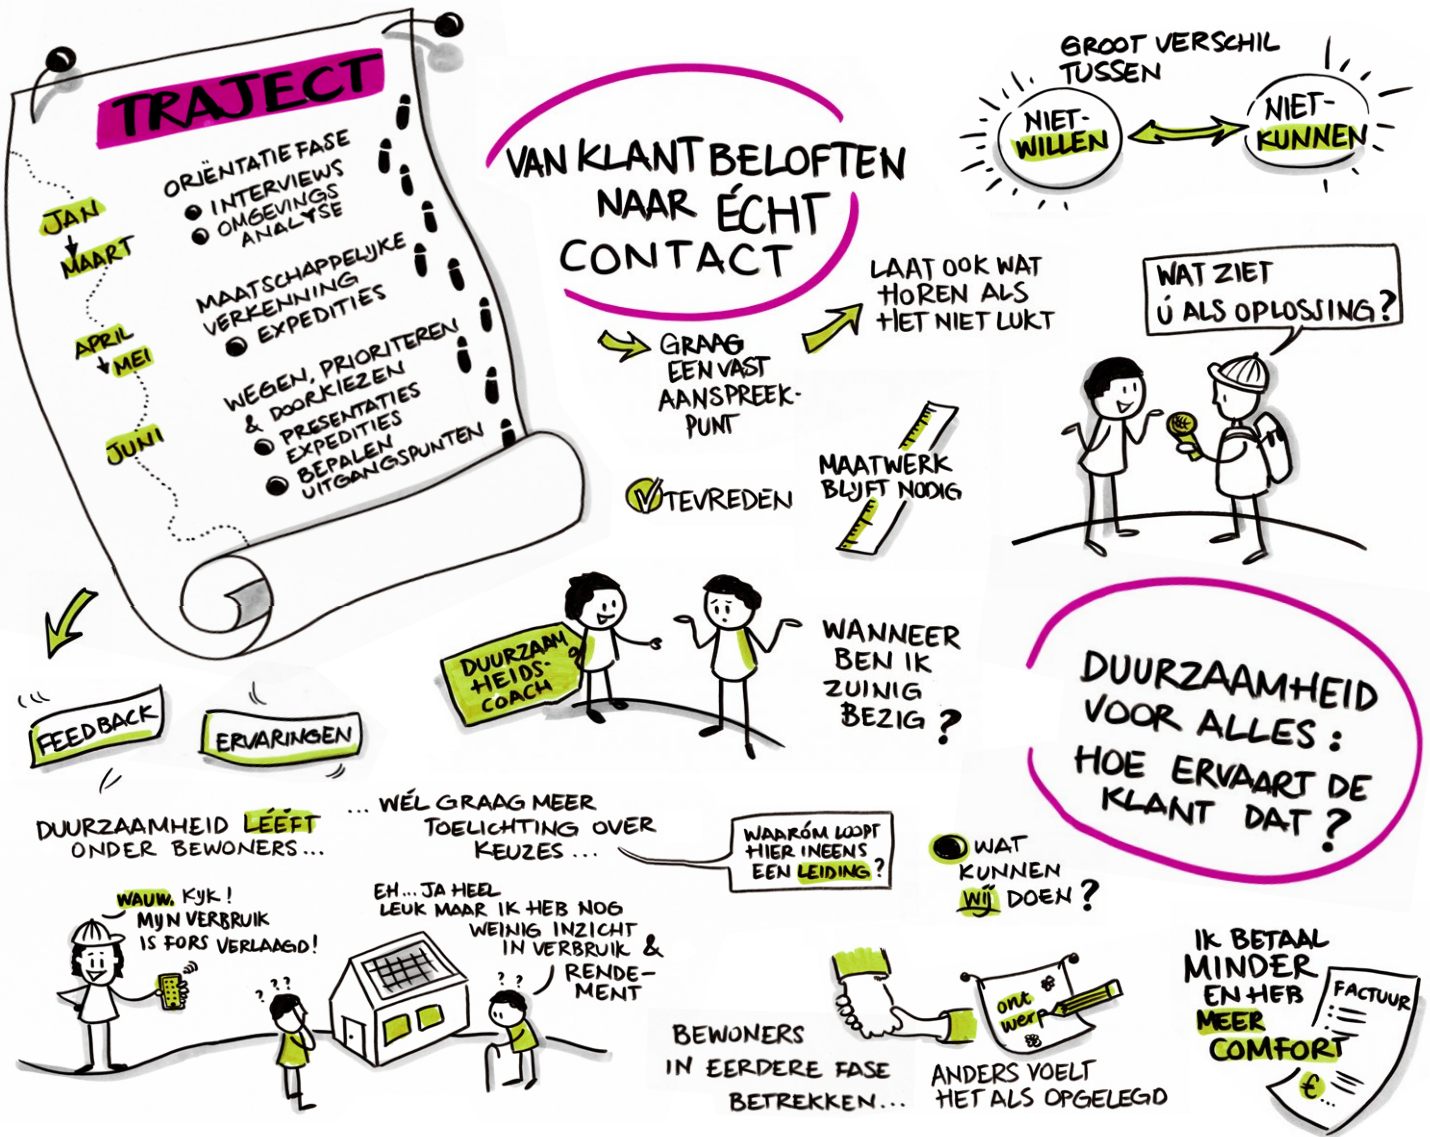 TRAJECT
JAN
MAART
APRIL
MEI
JUNI
ORIËNTATIE FASE
INTERVIEWS
OMGEVINGS
ANALYSE
MAATSCHAPPELIJKE
VERKENNING
EXPEDITIES
WEGEN, PRIORITEREN
& DOORKIEZEN
PRESENTATIES
EXPEDITIES
BEPALEN
UITGANGSPUNTEN
VAN KLANTBELOFTEN
NAAR ÉCHT
CONTACT
GRAAG
EEN VAST
AANSPREEK-
PUNT
LAAT OOK WAT
HOREN ALS
HET NIET LUKT
TEVREDEN
MAATWERK
BLIJFT NODIG
GROOT VERSCHIL
TUSSEN
NIET-
WILLEN
NIET-
KUNNEN
WAT ZIET
Ú ALS OPLOSSING?
DUURZAAM
HEIDS-
COACH
WANNEER
BEN IK
ZUINIG
BEZIG?
DUURZAAMHEID
VOOR ALLES:
HOE ERVAART DE
KLANT DAT?
FEEDBACK
ERVARINGEN
DUURZAAMHEID LÉÉFT
ONDER BEWONERS...
...WÉL GRAAG MEER
TOELICHTING OVER
KEUZES...
WAARÓM LOOPT
HIER INEENS
EEN LEIDING?
WAT
KUNNEN
WIJ DOEN?
WAUW. KIJK!
MIJN VERBRUIK
IS FORS VERLAAGD!
EH... JA HEEL
LEUK MAAR IK HEB NOG
WEINIG INZICHT
IN VERBRUIK &
RENDE-
MENT
? ? ?
? ?
BEWONERS
IN EERDERE FASE
BETREKKEN...
ont
werp
ANDERS VOELT
HET ALS OPGELEGD
IK BETAAL
MINDER
EN HEB
MEER
COMFORT
FACTUUR
€...